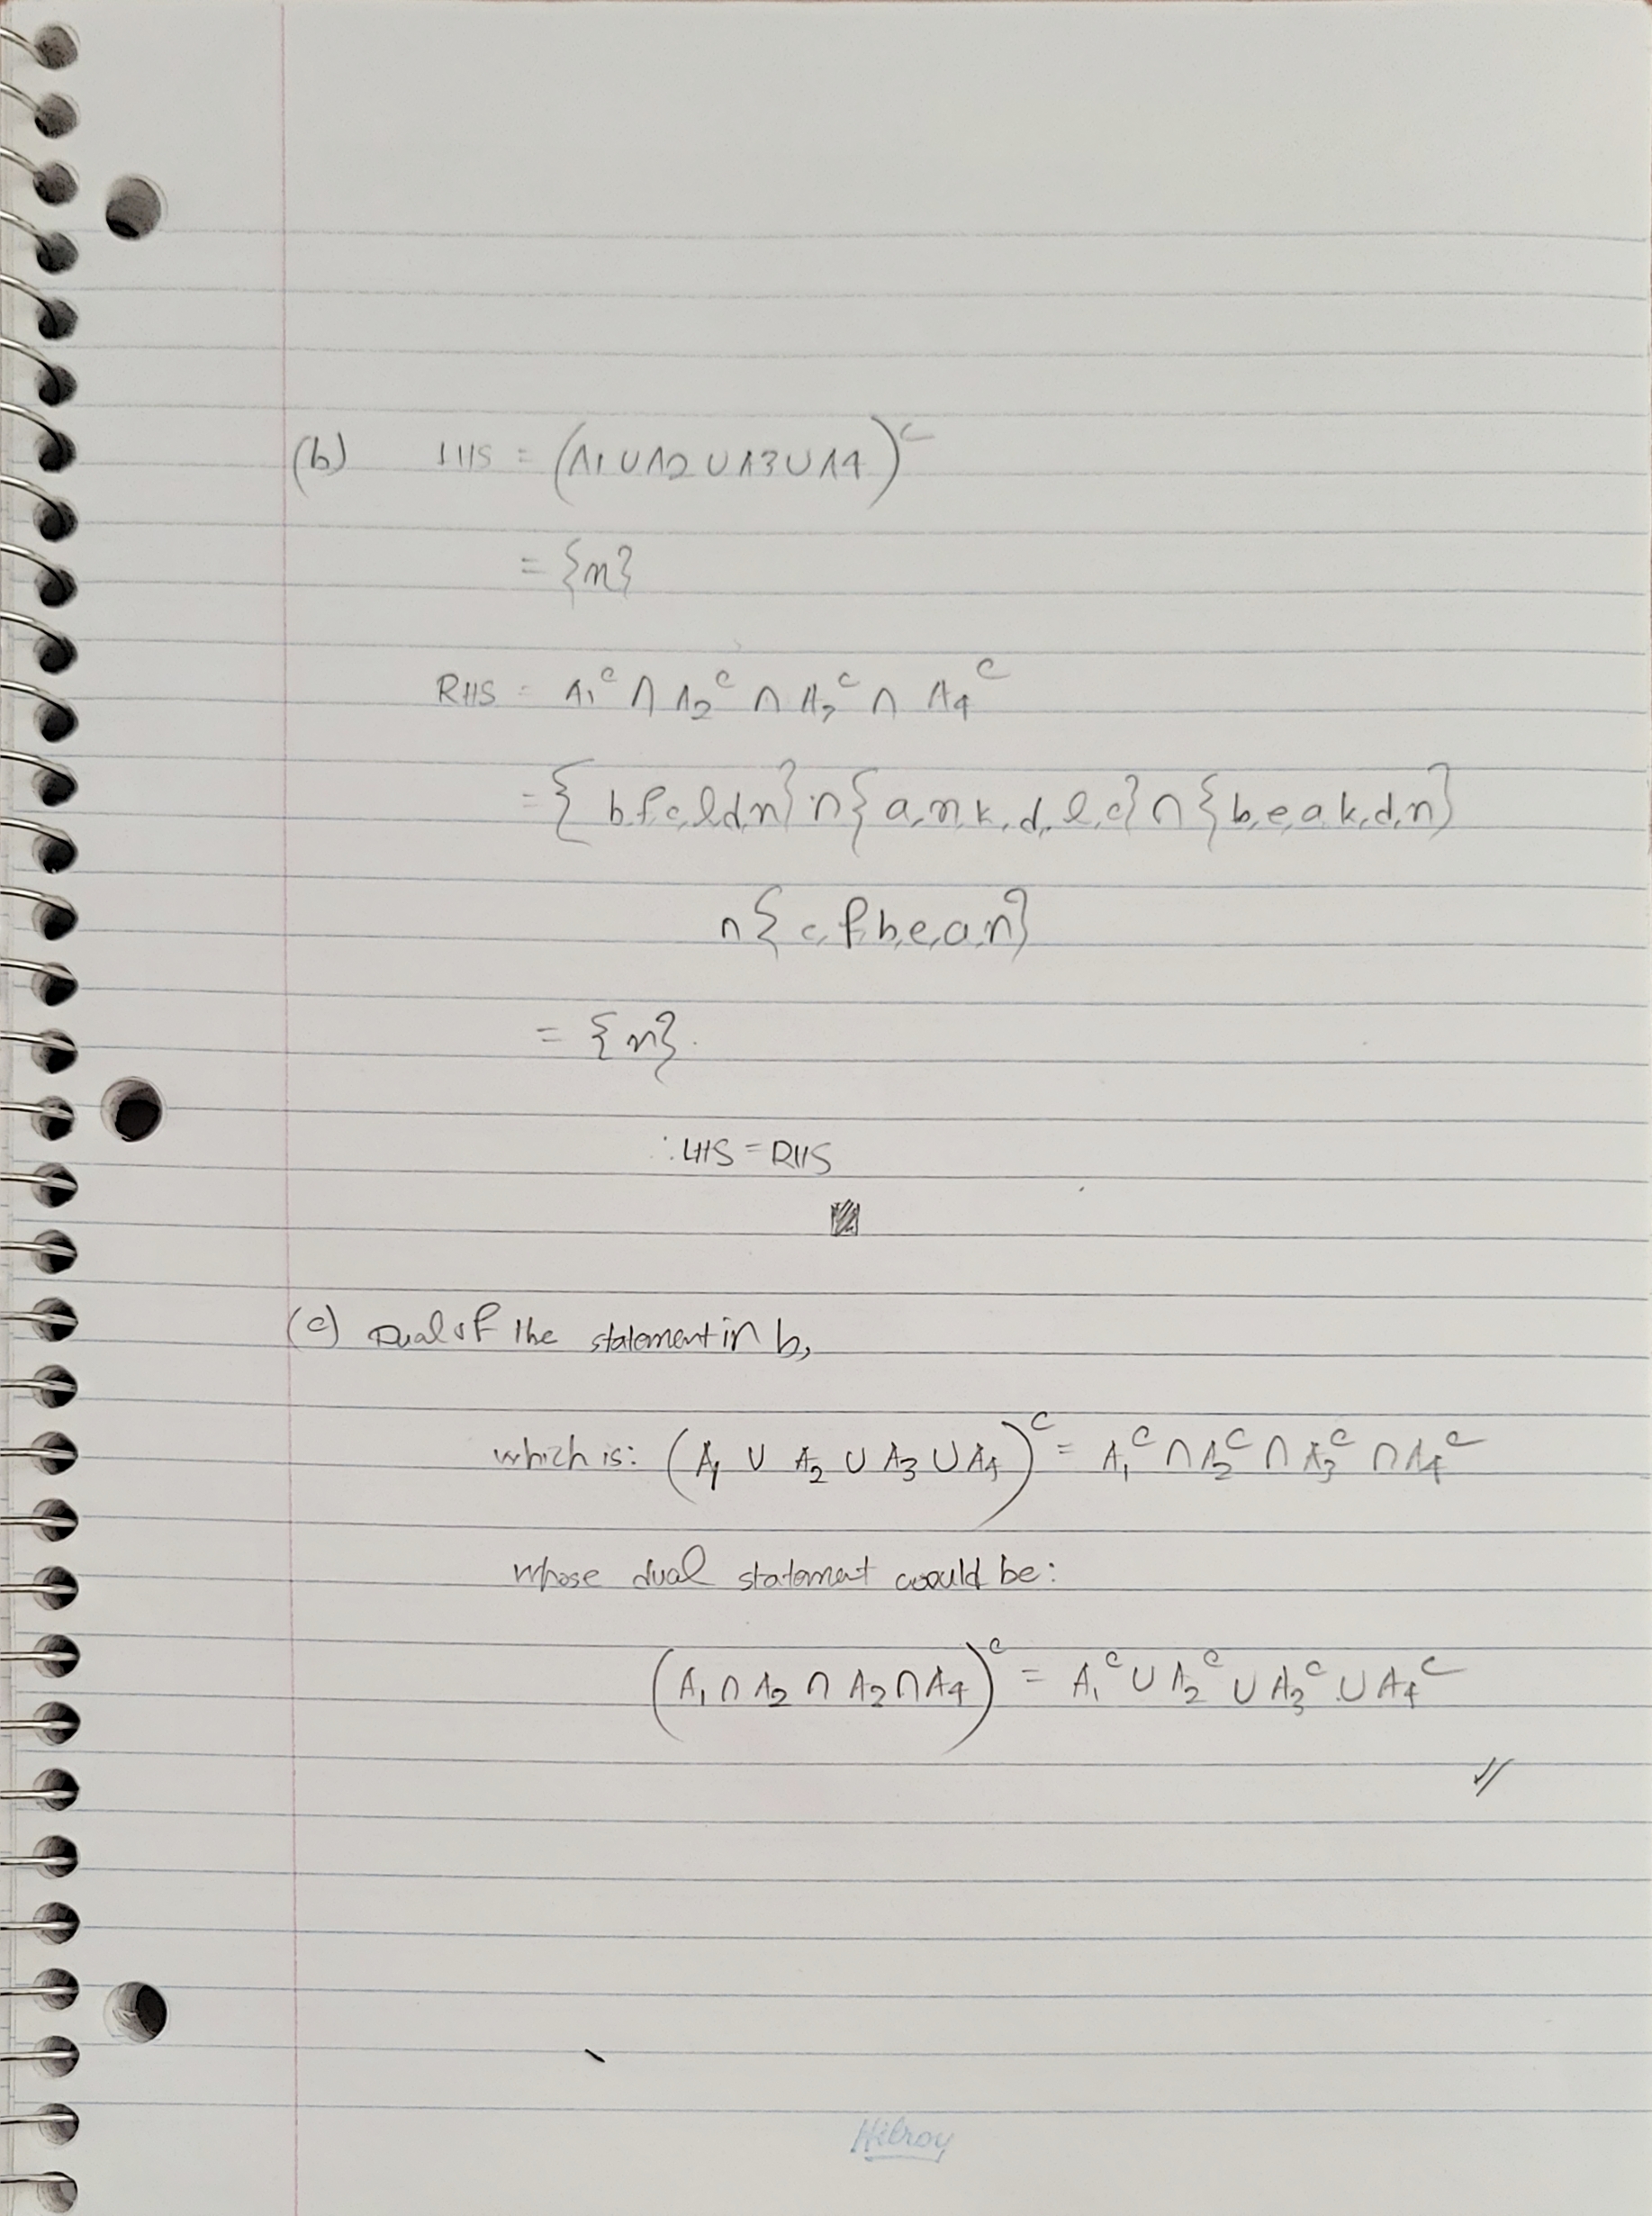 (b) LHS = (A1 ∪ A2 ∪ A3 ∪ A4)ᶜ
= {n}
RHS = A₁ᶜ ∩ A₂ᶜ ∩ A₃ᶜ ∩ A₄ᶜ
= { b,f,c,l,d,n} ∩ { a,n,k,d,l,c} ∩ { b,e,a,k,d,n}
∩ { c,f,b,e,a,n}
= {n}.
∴ LHS = RHS
(c) Dual of the statement in b,
which is: (A₁ ∪ A₂ ∪ A₃ ∪ A₄)ᶜ = A₁ᶜ ∩ A₂ᶜ ∩ A₃ᶜ ∩ A₄ᶜ
whose dual statement would be:
(A₁ ∩ A₂ ∩ A₃ ∩ A₄)ᶜ = A₁ᶜ ∪ A₂ᶜ ∪ A₃ᶜ ∪ A₄ᶜ
Hilroy